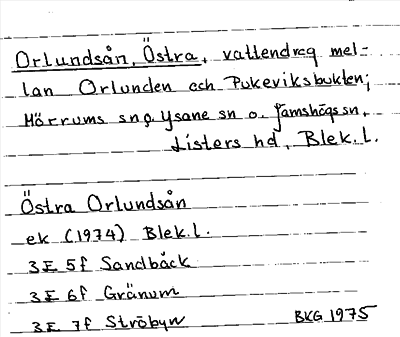 Orlundsån, Östra, vattendrag mel-
lan Orlunden och Pukeviksbukten;
Mörrums sn, Ysane sn o. Jämshögs sn,
Listers hd, Blek. l.
Östra Orlundsån
ek (1974) Blek. l.
3E 5f Sandbäck
3E 6f Gränum
3E 7f Ströbyn BKG 1975